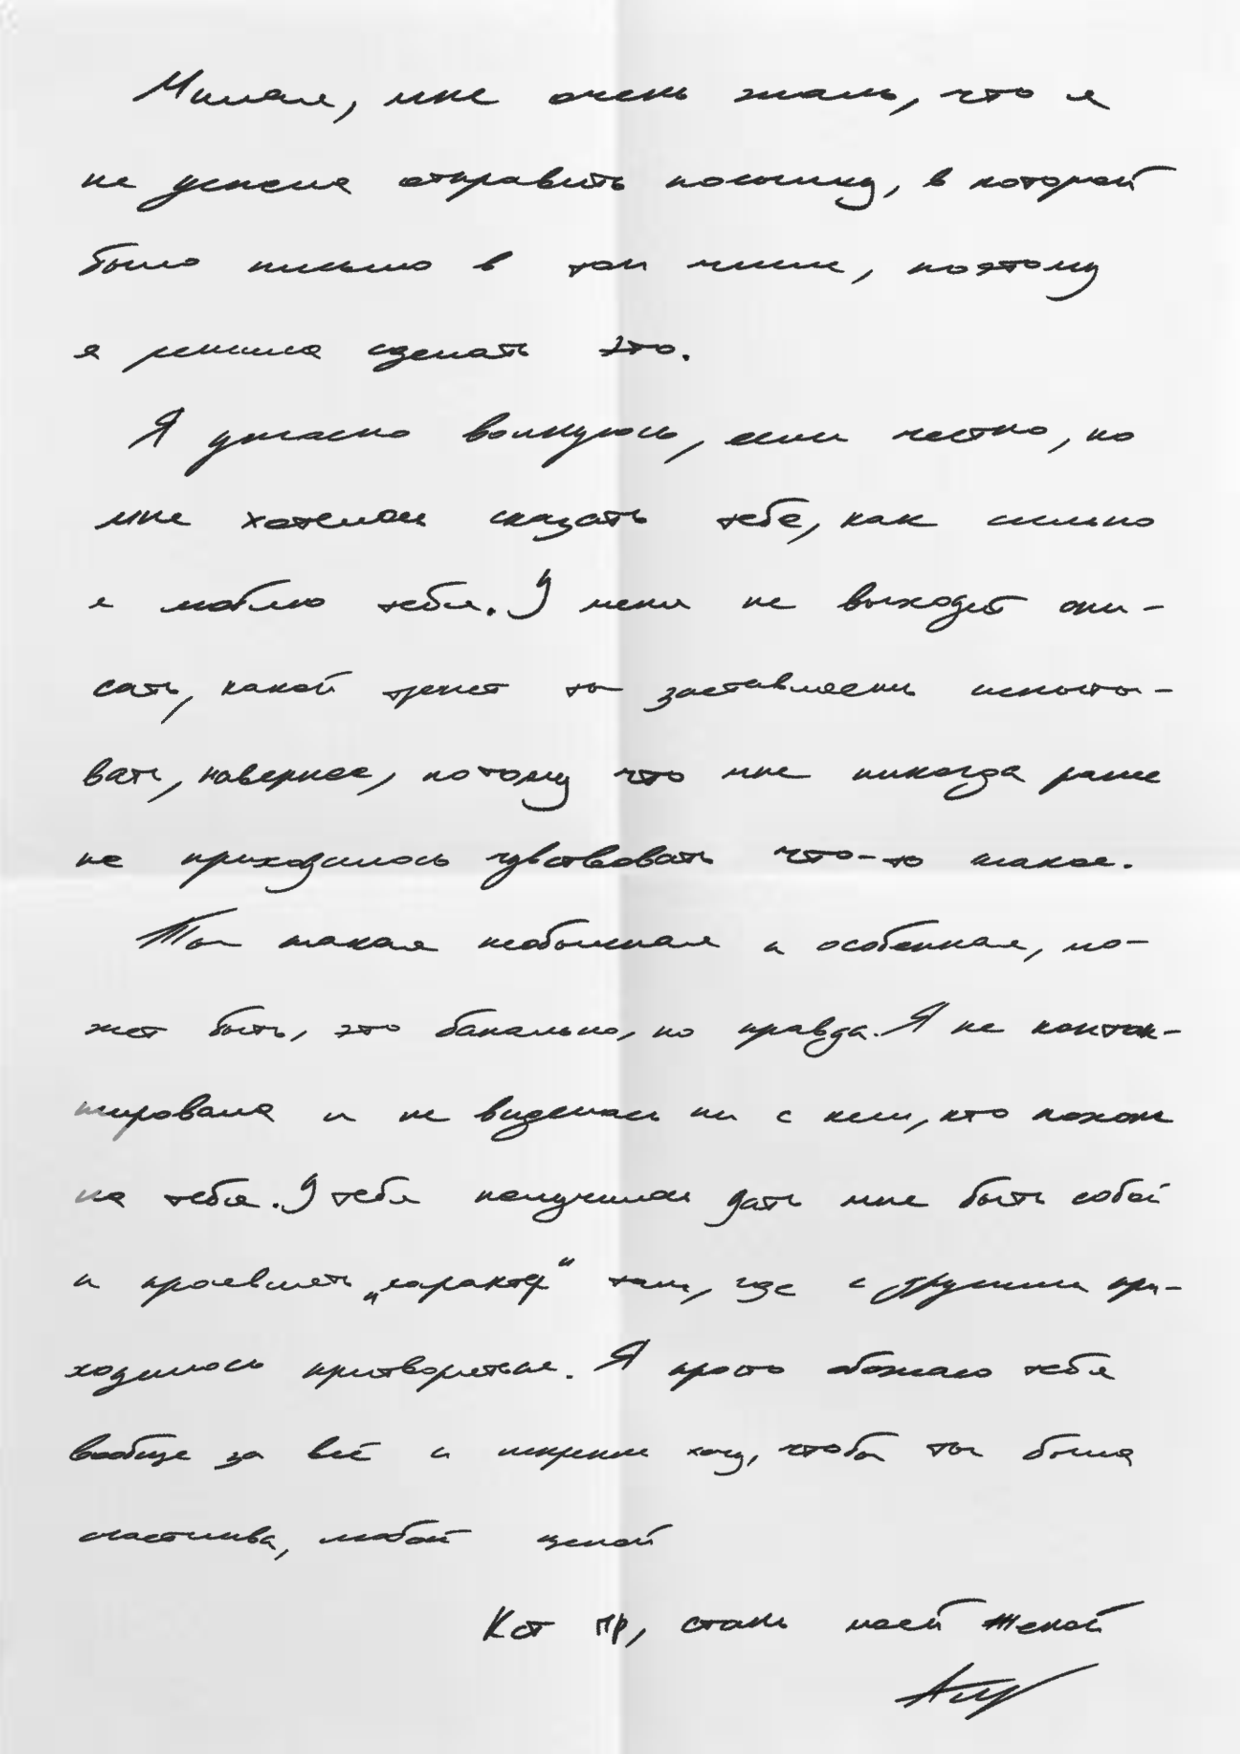 Милая, мне очень жаль, что я
не успела отправить посылку, в которой
было письмо в том числе, поэтому
я решила сделать это.
Я ужасно волнуюсь, если честно, но
мне хотелось сказать тебе, как сильно
я люблю тебя. У меня не выходит опи-
сать, какой трепет ты заставляешь испыты-
вать, наверное, потому что мне никогда ранее
не приходилось чувствовать что-то такое.
Ты такая необычная и особенная, мо-
жет быть, это банально, но правда. Я не контак-
тировала и не виделась ни с кем, кто похож
на тебя. У тебя получилось дать мне быть собой
и проявлять „характер“ там, где с другими при-
ходилось притворяться. Я просто обожаю тебя
вообще за всё и искренне хочу, чтобы ты была
счастлива, любой ценой
Кст пр, стань моей женой